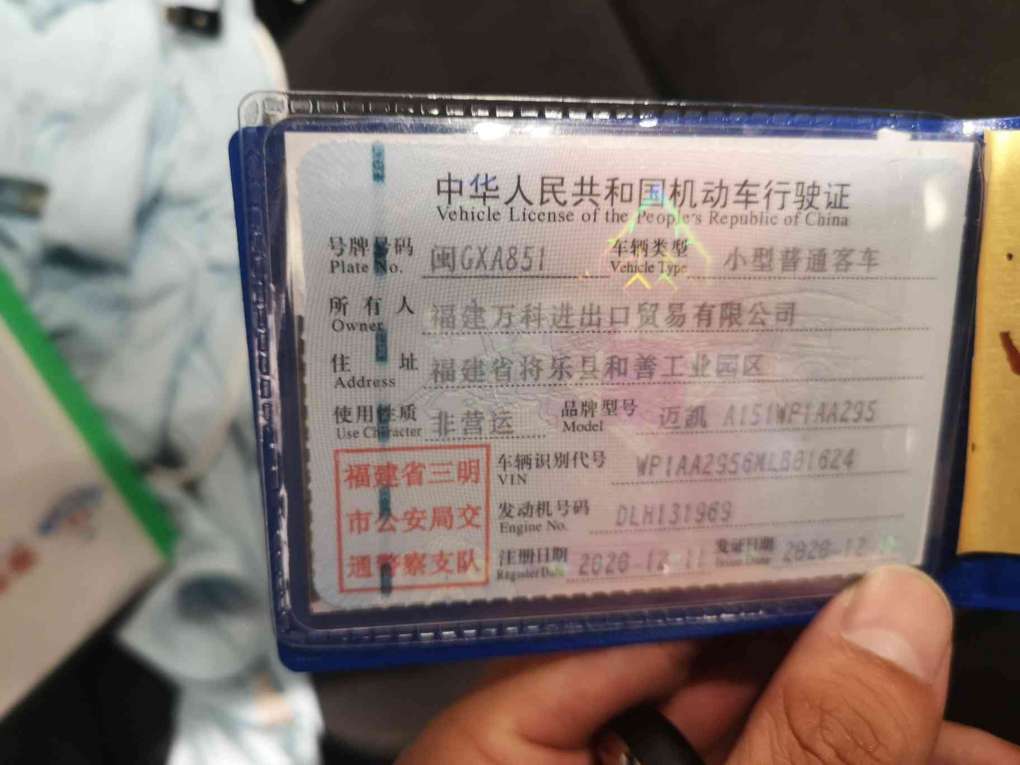 中华人民共和国机动车行驶证
Vehicle License of the People's Republic of China
号牌号码 闽GXA851 车辆类型 小型普通客车
Plate No. Vehicle Type
所有人 福建万科进出口贸易有限公司
Owner
住址 福建省将乐县和善工业园区
Address
使用性质 非营运 品牌型号 迈凯 A151WP1AA295
Use Character Model
车辆识别代号 WP1AA2956MLB01624
VIN
发动机号码 DLH131969
Engine No.
注册日期 2020-12-11 发证日期 2020-12
Register Date Issue Date
福建省三明
市公安局交
通警察支队